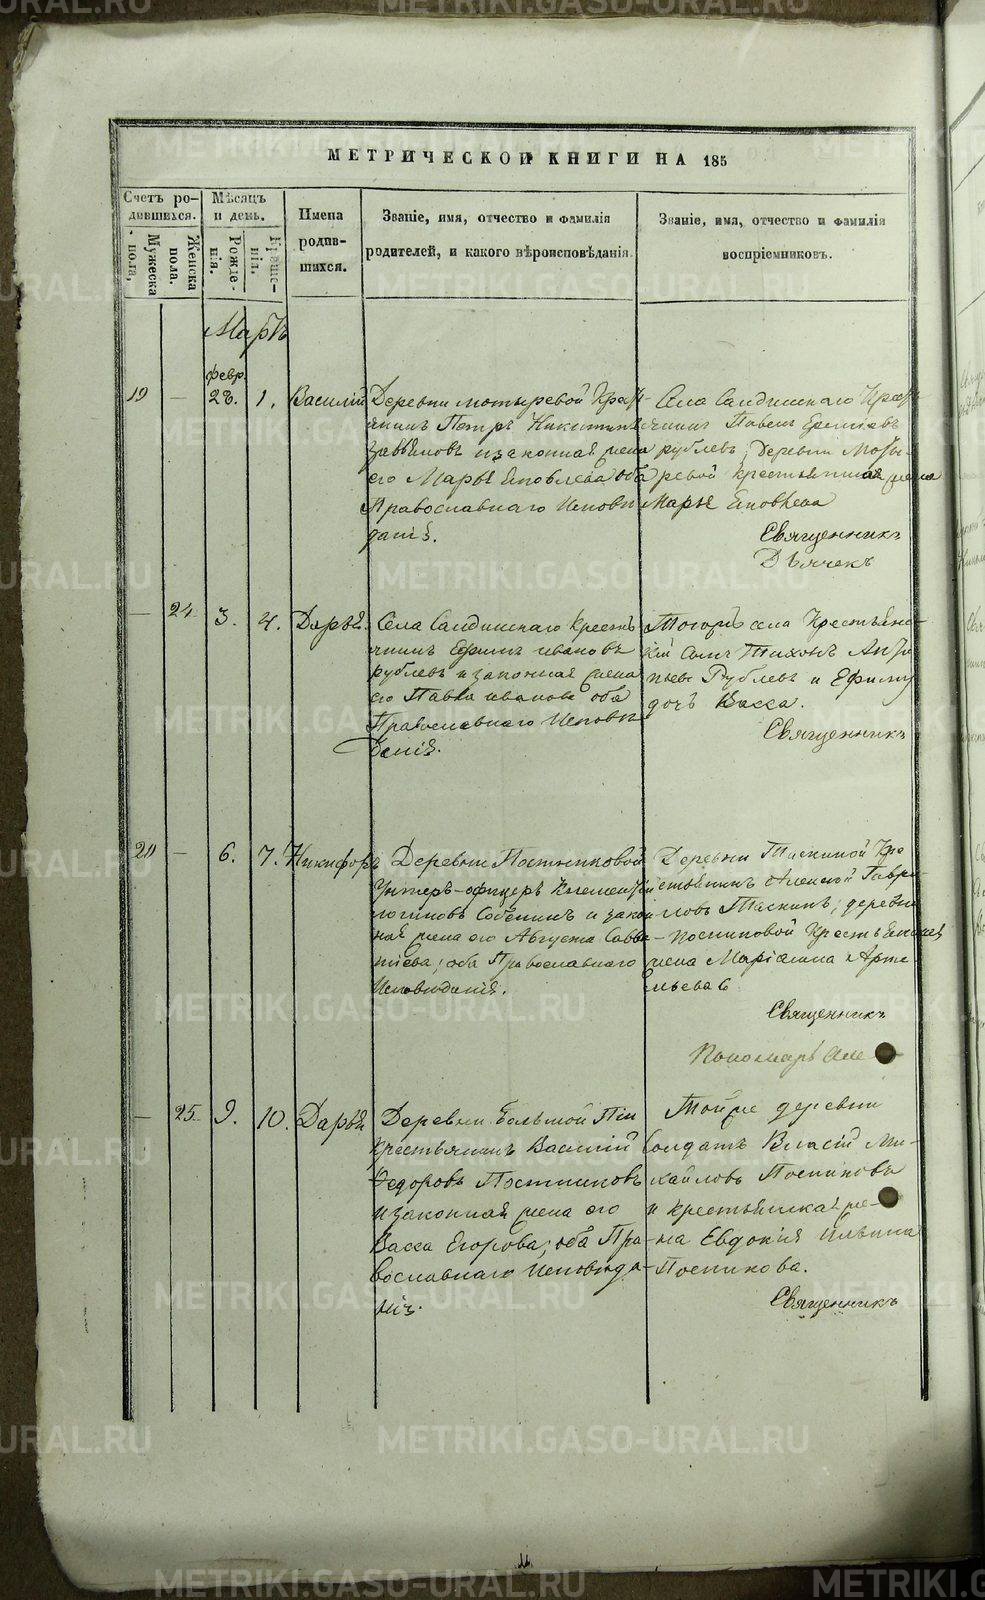 МЕТРИЧЕСКОЙ КНИГИ НА 185
Счетъ ро-
дившихся.
Мужеска
пола.
Женска
пола.
Мѣсяцъ
и день.
Рожде-
нія.
Креще-
нія.
Имена
родив-
шихся.
Званіе, имя, отчество и фамилія
родителей, и какого вѣроисповѣданія.
Званіе, имя, отчество и фамилія
воспріемниковъ.
Мартъ
февр.
19 — 28. 1. Василій
Деревни мотыревой Крест-
янинъ Петръ Никитинъ
и законная жена
его Марья Яковлева оба
Православнаго Исповѣ
данія.
Села Салдинскаго Крест
янинъ Павелъ
рублевъ; Деревни Моты-
ревой крестьянина жена
Марья Яковлева
Священникъ
Дьячекъ
— 24 3. 4. Дарья.
Села Салдинскаго Кресть
янинъ Ефимъ ивановъ
рублевъ и законная жена
его Павла иванова оба
Православнаго Исповѣ
данія.
Тогожъ села Крестьянс-
кій Сынъ Тихонъ
Рублевъ и Ефима
дочь Васса.
Священникъ
20 — 6. 7. Никифоръ
Деревни Постниковой
Унтеръ-офицеръ Климентій
логиновъ Собенинъ и закон
ная жена его Августа Савве
тіева; оба Православнаго
Исповѣданія.
Деревни Таскиной Кре
стьянинъ Алексѣй Гаври
ловъ Таскинъ; деревни
Посниковой Крестьянина
жена Маріамна Арте
мьева
Священникъ
Пономарь
— 25 9. 10. Дарья
Деревни Большой
Крестьянинъ Василій
Ѳедоровъ Постниковъ
и законная жена его
Васса Егорова; оба Пра-
вославнаго Исповѣда-
нія.
Тойже деревни
Солдатъ Власій Ми-
хайловъ Посниковъ
и крестьянская же-
на Евдокія Ильина
Посникова.
Священникъ
METRIKI.GASO-URAL.RU